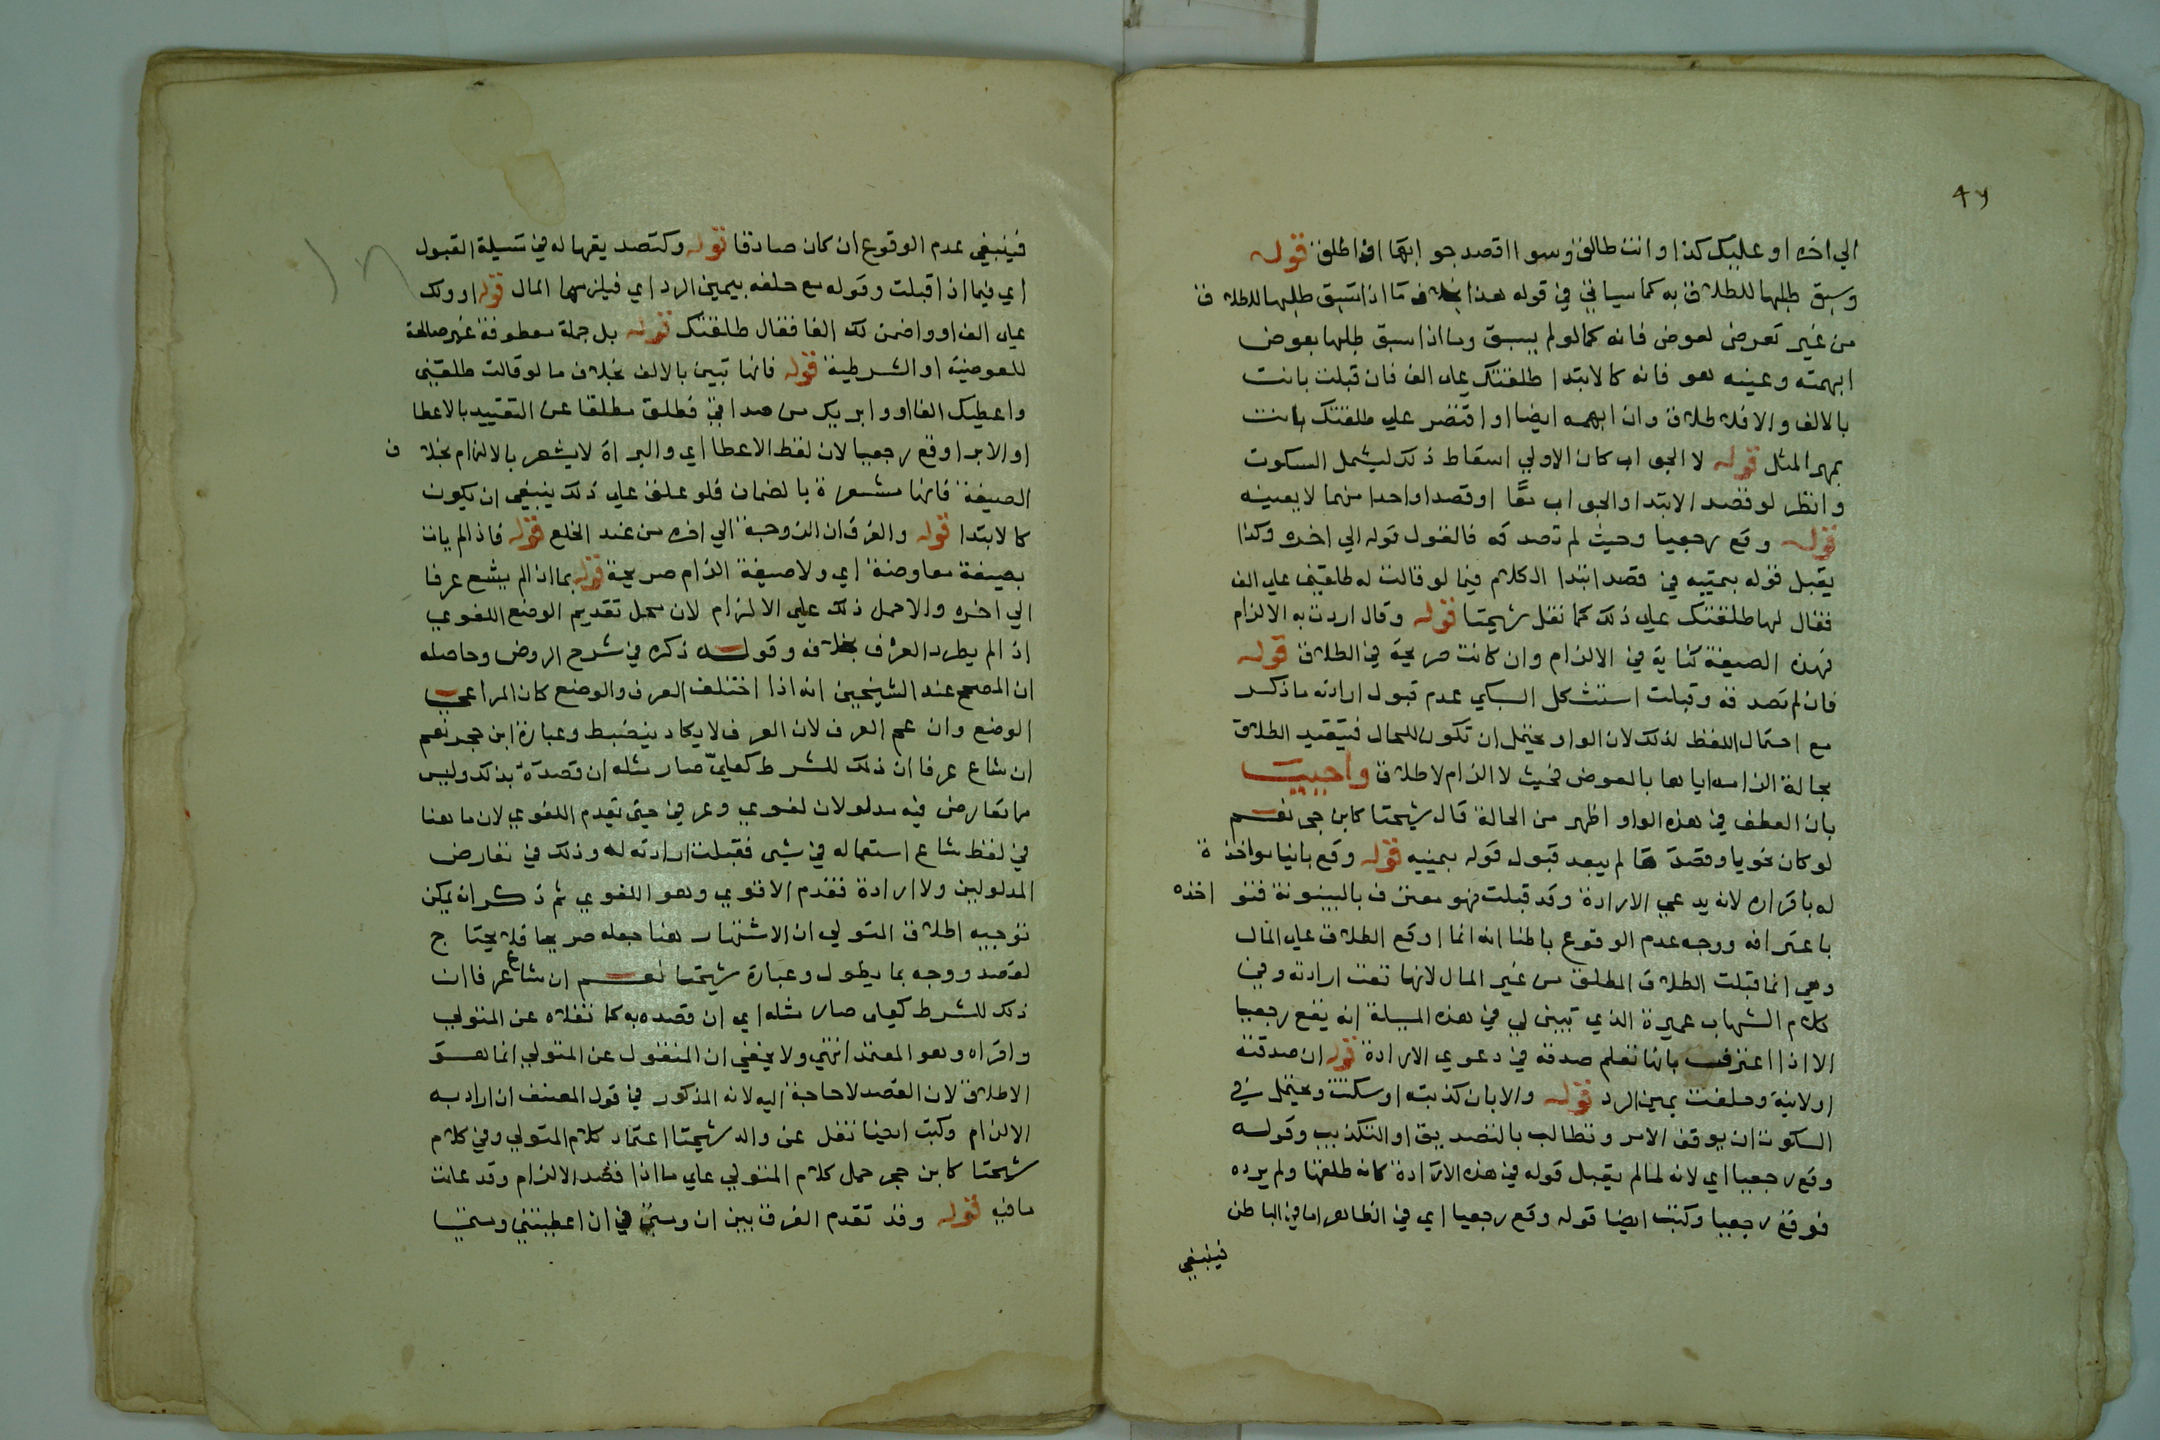 الي اخره او عليك كذا وانت طالق وسوا اقصد جوابهما ام اطلق قوله
وسبق طلبها للطلاق به كما سياتي في قوله هذا بخلاف ما اذا سبق طلبها للطلاق
من غير تعرض لعوض فانه كما لو لم يسبق وما اذا سبق طلبها بعوض
ابهمته وعينه هو فانه كالابتدا طلقتك علي الف فان قبلت بانت
بالالف والا فلا طلاق وان ابهمه ايضا او اقتصر علي طلقتك بانت
بمهر المثل قوله لا الجواب كان الاولي اسقاط ذلك ليشمل السكوت
وانظر لو قصد الابتدا والجواب معًا او قصد واحدا منهما لا بعينه
قوله وقع رجعيا وحيث لم تصدقه فالقول قوله الي اخره وكذا
يقبل قوله بيمينه في قصد ابتدا الكلام فيما لو قالت له طلقني علي الف
فقال لها طلقتك علي ذلك كما نقل شيخنا قوله وقال اردت به الالزام
فهذه الصيغة كناية في الالزام وان كانت صريحة في الطلاق قوله
فان لم تصدقه وقبلت استشكل السبكي عدم قبول ارادته ما ذكر
مع احتمال اللفظ لذلك لان الواو يحتمل ان تكون للحال فيتقيد الطلاق
بحالة الزامه اياها بالعوض فحيث لا الزام لا طلاق واجيب
بان العطف في هذه الواو اظهر من الحالة قال شيخنا كابن حجر نعم
لو كان نحويا وقصدها لم يبعد قبول قوله بيمينه قوله وقع باينا مواخذة
له باقراره لانه يدعي الارادة وقد قبلت فهو معترف بالبينونة فنواخذه
باعترافه ووجه عدم الوقوع باطنا انه انما اوقع الطلاق علي المال
وهي انما قبلت الطلاق المطلق من غير المال لانها نفت ارادته وفي
كلام الشهاب عميرة الذي تبين لي في هذه المسيلة انه يقع رجعيا
الا اذا اعترفت بانها تعلم صدقه في دعوي الارادة قوله ان صدقته
اولانية وحلفت يمين الرد قوله والا بان كذبته او سكتت ويحتمل في
السكوت ان يوقف الامر وتطالب بالتصديق او التكذيب وقوله
وقع رجعيا اي لانه لما لم يقبل قوله في هذه الارادة كانه طلقها ولم يرده
فوقع رجعيا وكتب ايضا قوله وقع رجعيا اي في الظاهر اما في الباطن
فينبغي
فينبغي عدم الوقوع ان كان صادقا قوله وكتصديقها له في مسيلة القبول
اي فيما اذا قبلت وقوله مع حلفه بيمين الرد اي فيلزمها المال قوله او ولك
علي الف او واضمن لك الفا فقال طلقتك قوله بل جملة معطوفة غير صالحة
للعوضية او الشرطية قوله فانها تبين بالالف بخلاف ما لو قالت طلقني
واعطيك الفا او وابريك من صداقي فطلق مطلقا عن التقييد بالاعطا
او الابرا وقع رجعيا لان لفظ الاعطا اي والبراة لا يشعر بالالزام بخلاف
الصيغة فانها مشعرة بالضمان فلو علق علي ذلك ينبغي ان يكون
كالابتدا قوله والفرق ان الزوجة الي اخره من عند الخلع قوله فاذا لم يات
بصيغة معاوضة اي ولا صيغة الزام صريحة قوله بما اذا لم يشع عرفا
الي اخره والا حمل ذلك علي الالزام لان محل تقديم الوضع اللغوي
اذا لم يطرد العرف بخلافه وقوله ذكره في شرح الروض وحاصله
ان المصحح عند الشيخين انه اذا اختلف العرف والوضع كان المراعي
الوضع وان عم العرف لان العرف لا يكاد ينضبط وعبارة ابن حجر نعم
ان شاع عرفا ان ذلك للشرط كعليّ صار مثله ان قصدَه بذلك وليس
ما تعارض فيه مدلولان لغوي وعرفي حتي يقدم اللغوي لان ما هنا
في لفظ شاع استعماله في شي فقبلت ارادته له وذلك في تعارض
المدلولين ولا ارادة فقدم الاقوي وهو اللغوي ثم ذكر انه يمكن
توجيه اطلاق المتولي ان الاشتهار هنا جعله صريحا فلا يحتاج
لقصد ووجه بما يطول وعبارة شيخنا نعم ان شاع عرفا ان
ذلك للشرط كعلي صار مثله اي ان قصده به كما نقلاه عن المتولي
واقراه وهو المعتمد انتهي ولا يخفي ان المنقول عن المتولي انما هو
الاطلاق لان القصد لا حاجة اليه لانه المذكور في قول المصنف ان اراد به
الالزام وكتب ايضا نقل عن والد شيخنا اعتماد كلام المتولي وفي كلام
شيخنا كابن حجر حمل كلام المتولي علي ما اذا قصد الالزام وقد علمت
ما فيه قوله وقد تقدم الفرق بين ان ومتي في ان اعطيتني ومتي